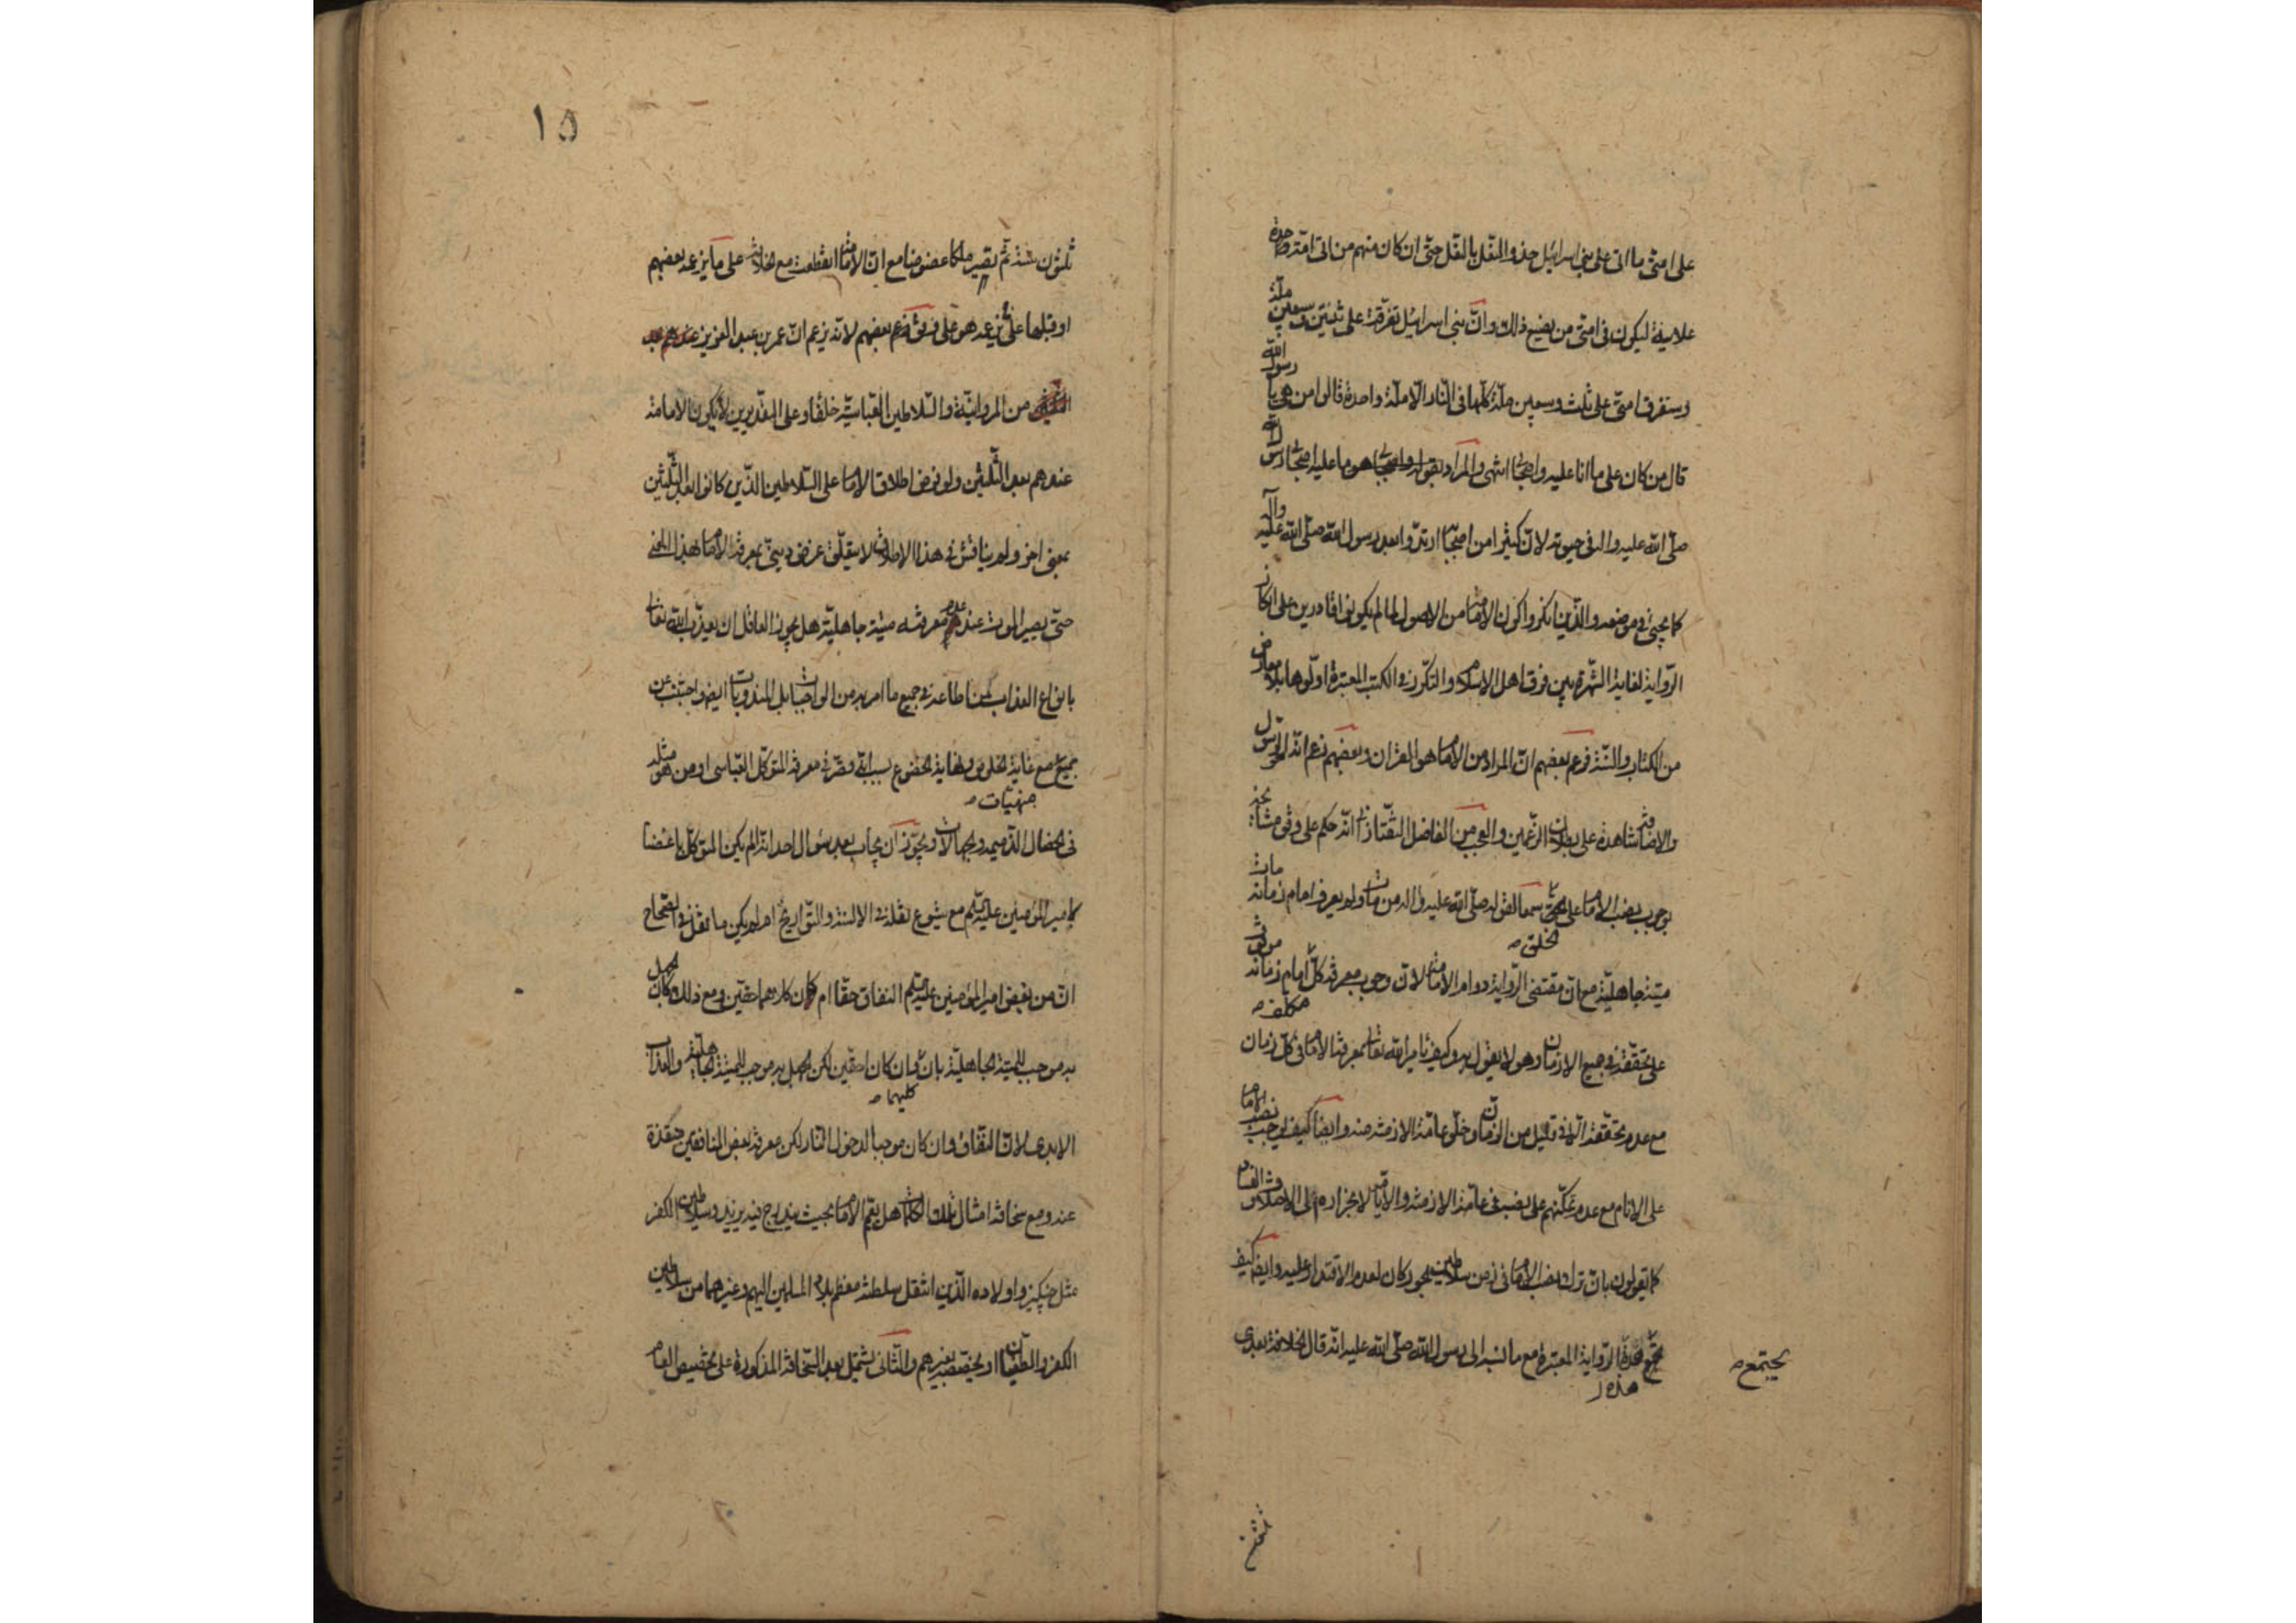 على امتى ما اتى على بنى اسرائيل حذو النعل بالنعل حتى ان كان منهم من اتى امته واحدة
علانية ليكون فى امتى من يصنع ذلك وان بنى اسرائيل تفرقت على ثنتين وسبعين ملة
وستفرق امتى على ثلث وسبعين ملة كلها فى النار الا ملة واحدة قالوا من هى يا رسول الله
قال من كان على ما انا عليه واصحابى انتهى والمراد بقوله واصحابى هو ما عليه اصحاب رسول الله
صلى الله عليه واله فى حيوته لان كثيرا من اصحابه ارتدوا بعد رسول الله صلى الله عليه وآله
كما يجئ فى موضعه والذين انكروا كون الامامة من الاصول لما لم يكونوا قادرين على انكار
الرواية لغاية الشهرة بين فرق اهل الاسلام والتكرر فى الكتب المعتبرة اولوها بلا معارض
من الكتاب والسنة فزعم بعضهم ان المراد من الامام هو القران وبعضهم زعم انه الرسول
والاضافة شاهدة على بطلان الزعمين والعجب من الفاضل التفتازانى انه حكم على وفق
بوجوب نصب الامام على الخلق سمعا لقوله صلى الله عليه واله من مات ولم يعرف امام زمانه مات
الخلق
ميتة جاهلية مع ان مقتضى الرواية دوام الامامة لان وجوب معرفة كل امام زمانه موقوف
مكلف
على تحققه فى جميع الازمان وهو لا يقول به وكيف يامر الله تعالى بمعرفة الامام فى كل زمان
مع عدم تحققه الا فى قليل من الزمان وخلو عامة الازمنة منه وايضا كيف يوجب نصب الامام
على الانام مع عدم تمكنهم على نصبه فى عامة الازمنة والايام لانجراره الى الاختلاف والفساد
كما يقولون بان ترك نصب الامام فى زمن سلاطين الجور كان لعدم الاقتدار عليه وايضا كيف
هذه الرواية المعتبرة مع ما نسبه الى رسول الله صلى الله عليه انه قال الخلافة بعدى
يجتمع
هذه
ثلثون سنة ثم يصير ملكا عضوضا مع ان الامامة انقطعت مع الخلافة على ما يزعمه بعضهم
او قبلها على ما يزعمه هو على فرق زعم بعضهم لانه يزعم ان عمر بن عبد العزيز
من المروانية والسلاطين العباسية خلفا وعلى التقديرين لا يكون الامامة
عندهم بعد الثلثين ولو فرض اطلاق الامام على السلاطين الذين كانوا بعد الثلثين
بمعنى اخر ولم يناقش فى هذا الاطلاق لا يتعلق غرض دينى بمعرفة الامام بهذا المعنى
حتى يصير الموت عند عدم معرفته ميتة جاهلية هل يجوز العاقل ان يعذب الله تعالى
بانواع العذاب لمن اطاعه فى جميع ما امر به من الواجبات بل المندوبات ايضا واجتنب عن
جميع مع غاية الخلوص ونهاية الخضوع بسبب انه قصر فى معرفة المتوكل العباسى او من هو مثله
منهيات
فى الخصال الذميمة والجهالات ويجوز ان يجاب بعد سؤال احد انه الم يكن المتوكل باغضا
لامير المؤمنين عليه السلم مع شيوع نقله فى الالسنة والتواريخ ام لم يكن ما نقل فى الصحاح
ان من بغض امير المؤمنين عليه السلم النفاق حقا ام كان كلاهما حقين ومع ذلك كان الجهل
به موجب للميتة الجاهلية بان وان كان حقين لكن الجهل به موجب للميتة الجاهلية والعذاب
كليهما
الابدى لان النفاق وان كان موجبا لدخول النار لكن معرفة بعض المنافقين منقذة
عنه ومع سخافة امثال تلك الكلمات هل يعم الامام بحيث يندرج فيه يزيد وسلاطين الكفر
مثل جنكيز واولاده الذين انتقل سلطنة معظم بلاد المسلمين اليهم وغيرهما من سلاطين
الكفر والطغيان او يختص بغيرهم والثانى يشتمل بعد السخافة المذكورة على تخصيص العام
١٥